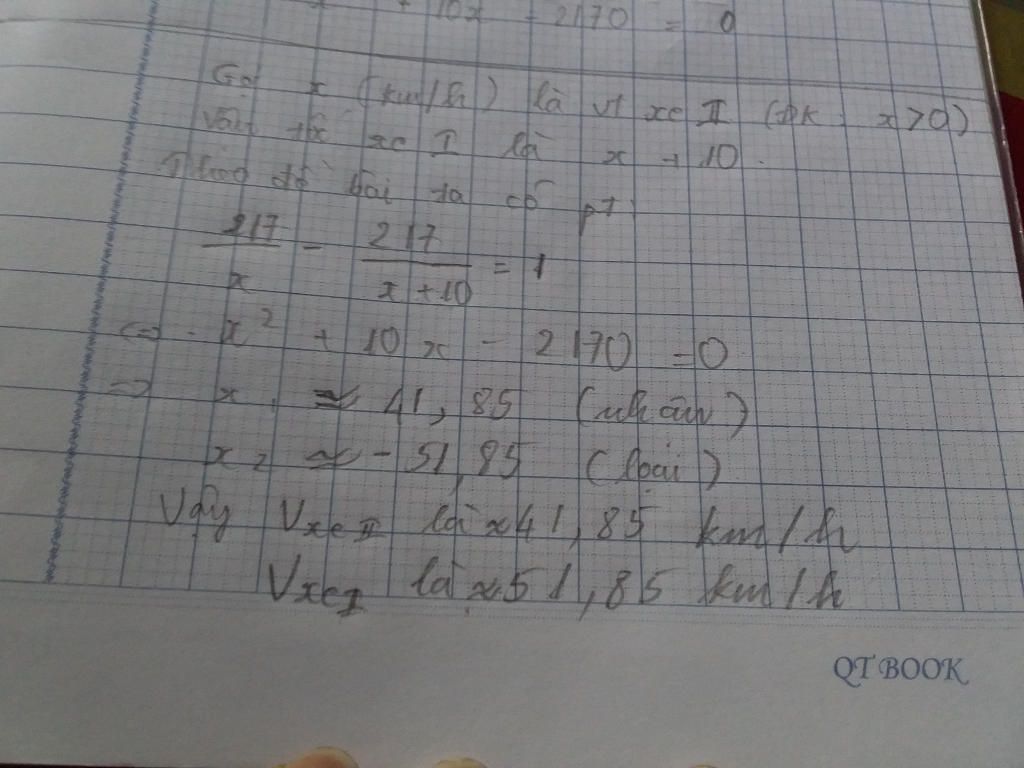 + 10x - 2170 = 0
Gọi x (km/h) là vt xe II (ĐK: x > 0)
Vận tốc xe I là x + 10.
Theo đề bài ta có pt:
217/x - 217/(x + 10) = 1
<=> x² + 10x - 2170 = 0
=> x₁ ≈ 41,85 (nhận)
x₂ ≈ -51,85 (loại)
Vậy Vxe II là ≈ 41,85 km/h
Vxe I là ≈ 51,85 km/h
QT BOOK